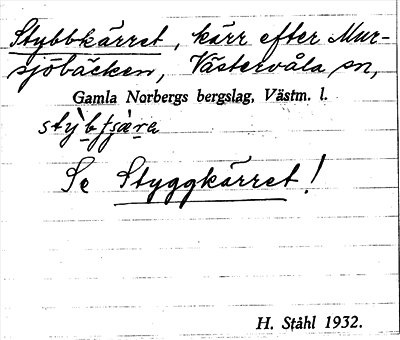 Stybbkärret, kärr efter Mur-
sjöbäcken, Västervåla sn,
Gamla Norbergs bergslag, Västm. l.
Se Styggkärret!
H. Ståhl 1932.